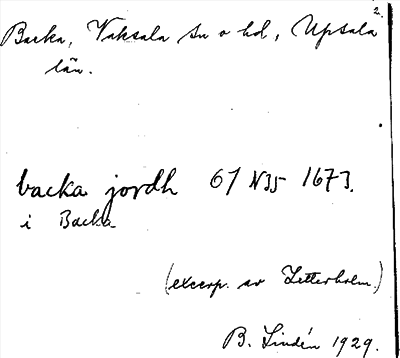 2.
Backa, Vaksala sn o hd, Uppsala
län.
backa jordh 61 N35 1673.
i Backa
(excerp. av Zetterholm.)
B. Lindén 1929.